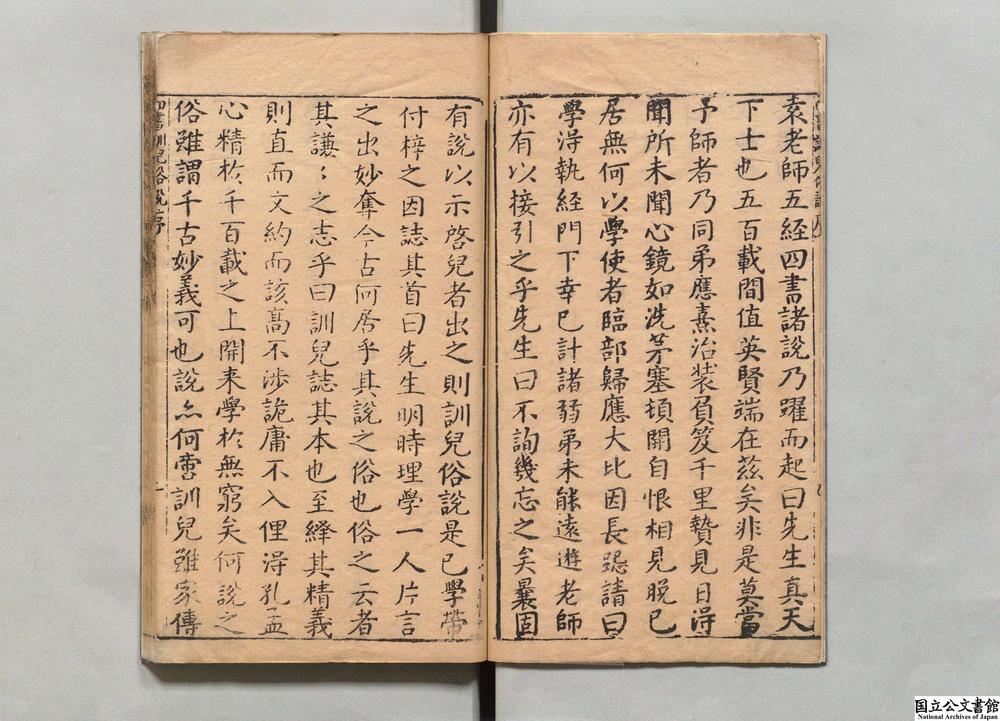 袁老師五経四書諸說乃躍而起曰先生真天
下士也五百載間值英賢端在茲矣非是莫當
予師者乃同弟應熹治装負笈千里贄見日淂
聞所未聞心鏡如洗茅塞頓開自恨相見晚已
居無何以學使者臨部歸應大比因長跽請曰
學淂執經門下幸已計諸弱弟未能遠遊老師
亦有以接引之乎先生曰不詢幾忘之矣曩固
有說以示啓兒者出之則訓兒俗說是已學帶
付梓之因誌其首曰先生明時理學一人片言
之出妙奪今古何居乎其說之俗也俗之云者
其謙〻之志乎曰訓兒誌其本也至繹其精義
則直而文約而該髙不涉詭庸不入俚淂孔孟
心精扵千百載之上開来學扵無窮矣何說之
俗雖謂千古妙義可也說亦何啻訓兒雖家傳
四書訓兒俗說序
国立公文書館
National Archives of Japan